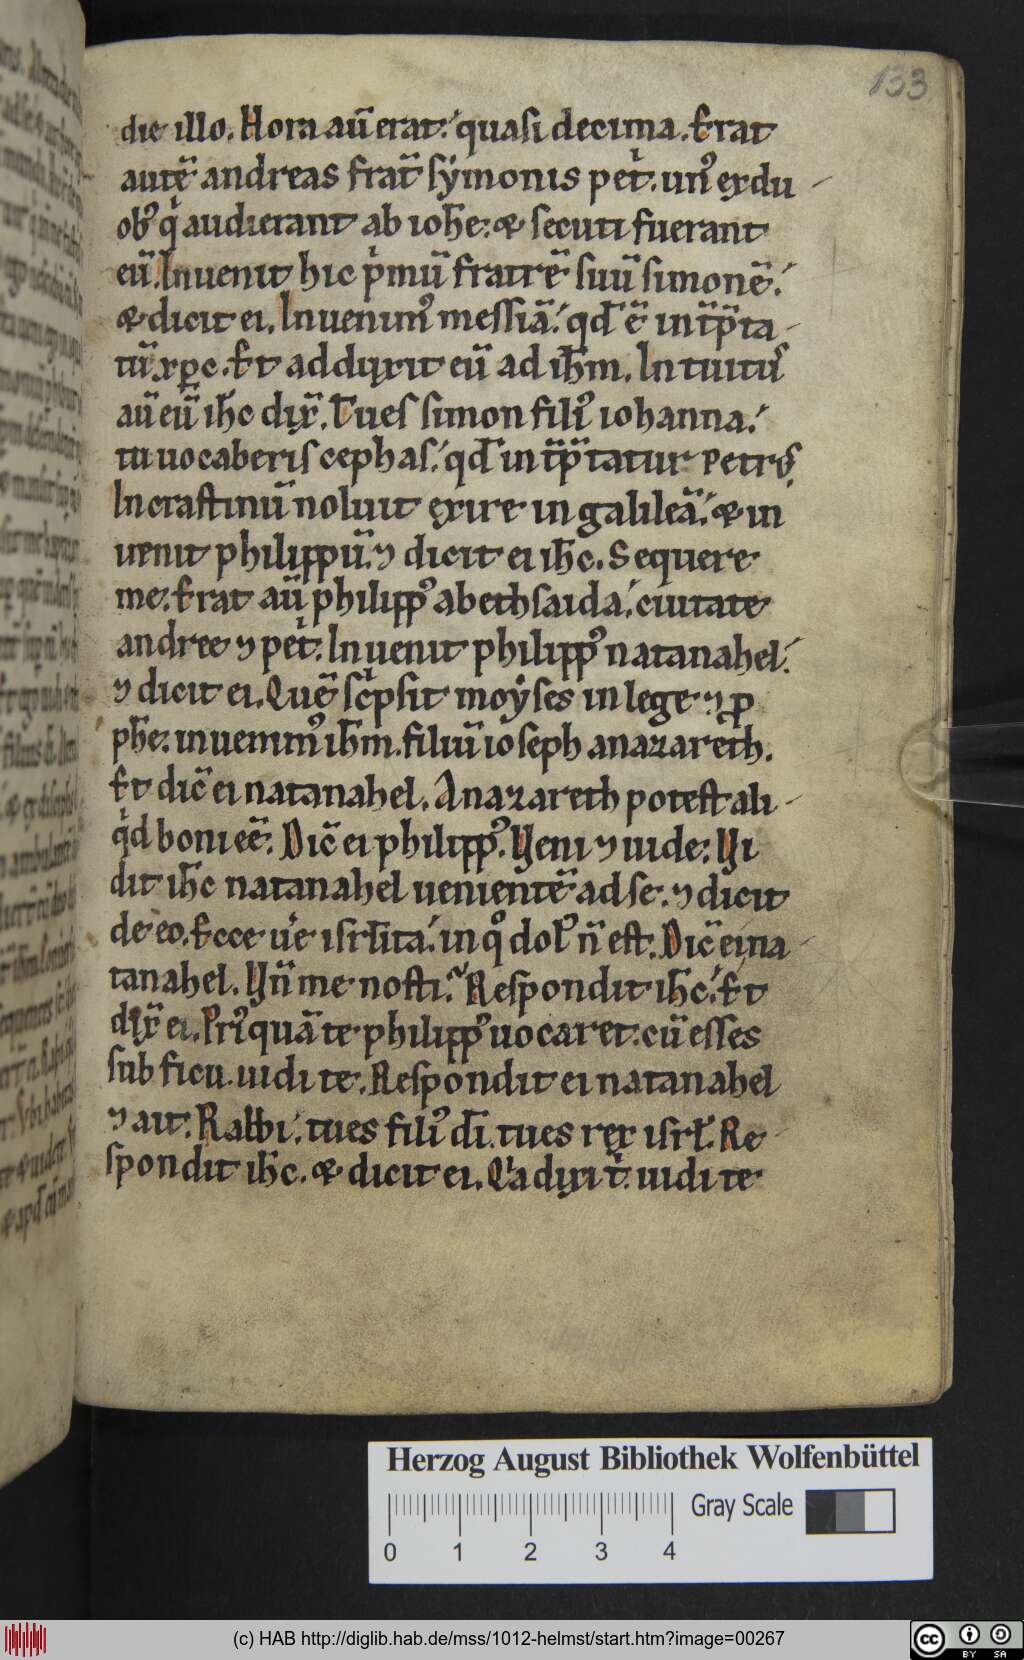 133
die illo. Hora au̅ erat. quasi decima. Erat
aute̅ andreas frat̅ sẏmonis pet. un᾽ ex du
ob᾽ qͥ audierant ab ioh̅e. & secuti fuerant
eu̅. Inuenit hic pͥmu̅ fratre̅ suu̅ simone̅.
& dicit ei. Inuenim᾽ messia̅. qd̅ e̅ int̅p̅ta
tu̅ xp̅c. Et adduxit eu̅ ad ih̅m. Intuitus
au̅ eu̅ ih̅c dix̅. Tu es simon fili᾽ iohanna.
tu uocaberis cephas. qd̅ int̅p̅tatur petrus.
In crastinu̅ noluit exire in galilea̅. & in
uenit philippu̅. ⁊ dicit ei ih̅c. Sequere
me. Erat au̅ philipp᾽ abethsaida. ciuitate
andree ⁊ petͥ. Inuenit philipp᾽ natanahel.
⁊ dicit ei. Que̅ scͥpsit moẏses in lege ⁊ ꝓ
ph̅e. inuenim᾽ ih̅m. filiu̅ ioseph anazareth.
Et dic̅ ei natanahel. Anazareth potest ali
qͥd boni ee̅. Dic̅ ei philipp᾽. Veni ⁊ uide. Vi
dit ih̅c natanahel ueniente̅ ad se. ⁊ dicit
de eo. Ecce ue̅ isrl̅ita. in qͦ dol᾽ n̅ est. Dic̅ ei na
tanahel. Vn̅ me nosti. Respondit ih̅c. Et
dix̅ ei. Pri᾽qua̅ te philipp᾽ uocaret. cu̅ esses
sub ficu. uidi te. Respondit ei natanahel
⁊ ait. Rabbi. tu es fili᾽ di̅. tu es rex isrl̅. Re
spondit ih̅c. & dicit ei. Qͥa dixi tͥ. uidi te
Herzog August Bibliothek Wolfenbüttel
Gray Scale
0 1 2 3 4
(c) HAB http://diglib.hab.de/mss/1012-helmst/start.htm?image=00267
cc BY SA